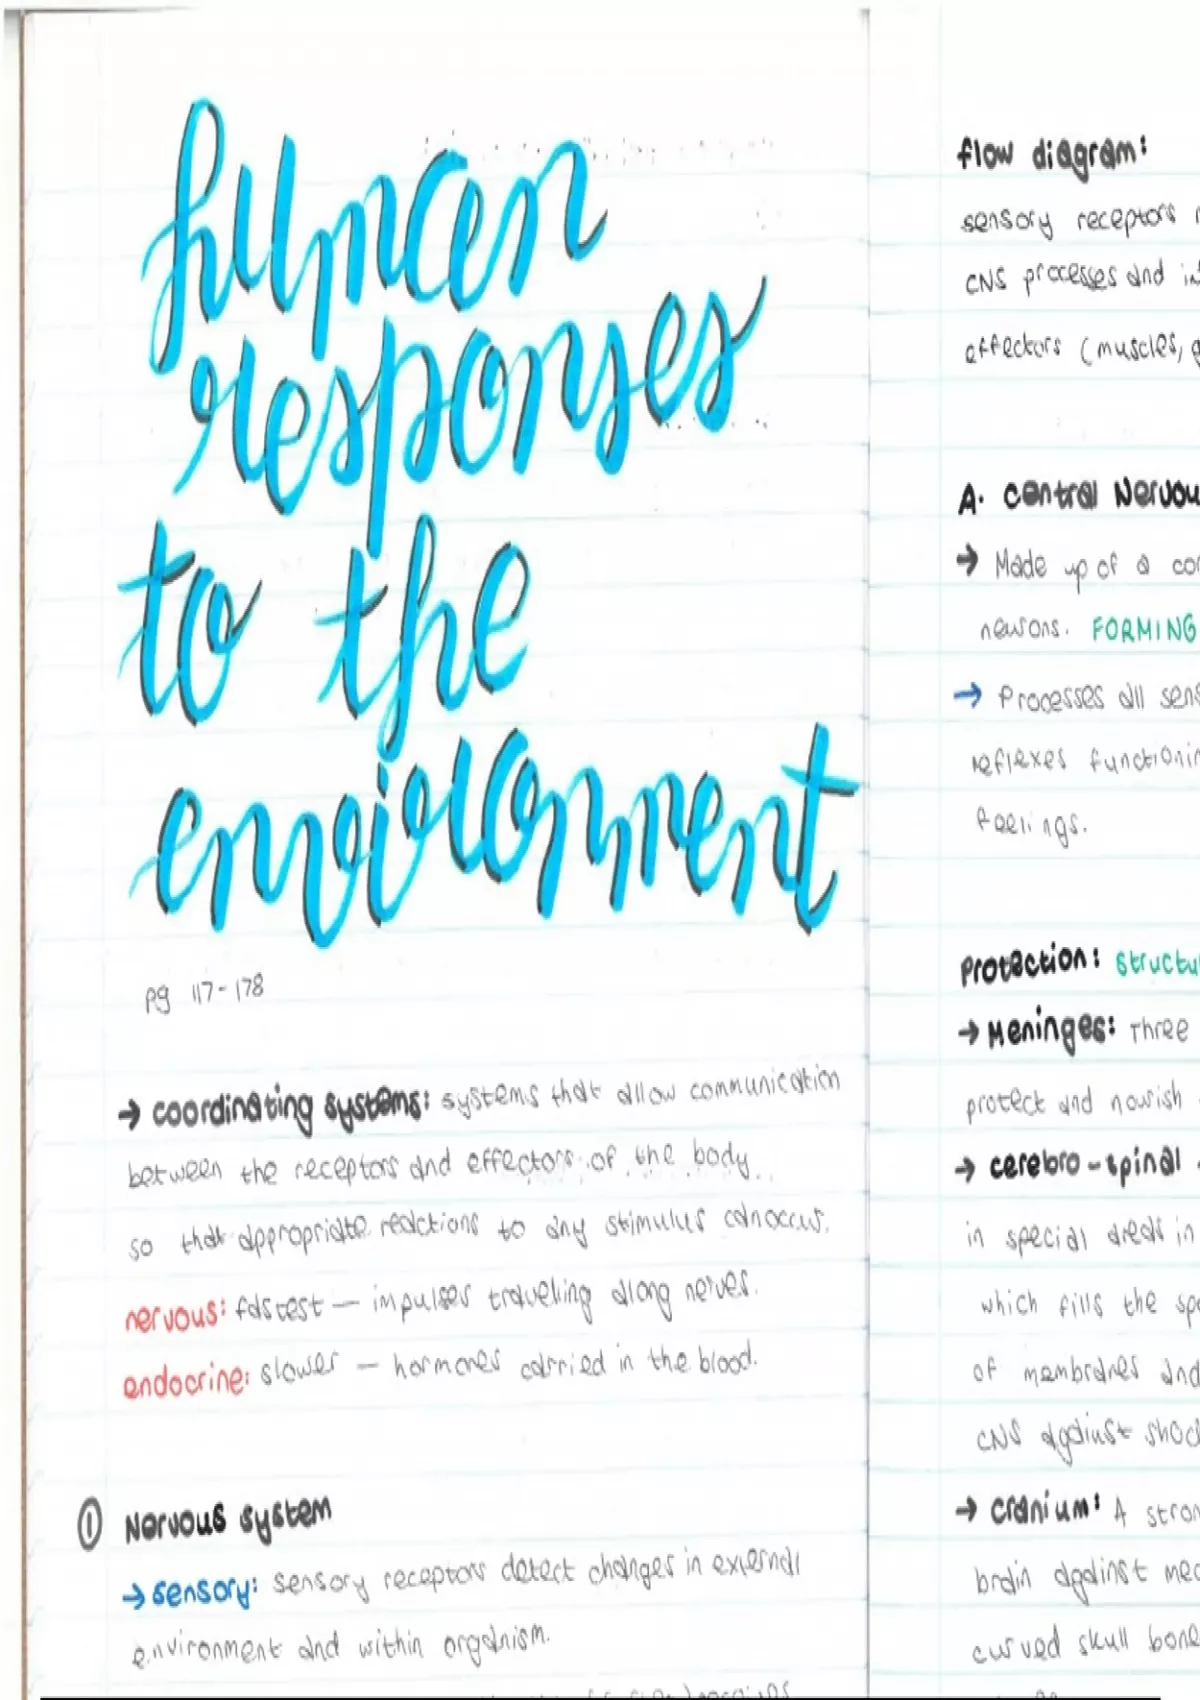 human
responses
to the
environment
pg 117-178
→ coordinating systems: systems that allow communication
between the receptors and effectors of the body
so that appropriate reactions to any stimulus can occur.
nervous: fastest — impulses travelling along nerves.
endocrine: slower — hormones carried in the blood.
① Nervous system
→ sensory: sensory receptors detect changes in external
environment and within organism.
flow diagram:
sensory receptors
CNS processes and
effectors (muscles,
A. Central Nervou
→ Made up of a
neurons. FORMING
→ Processes all
reflexes
feelings.
Protection:
→ Meninges: Three
protect and nourish
→ cerebro-spinal
in special areas in
which fills the
of membranes and
CNS against
→ cranium: A
brain against
curved skull bone